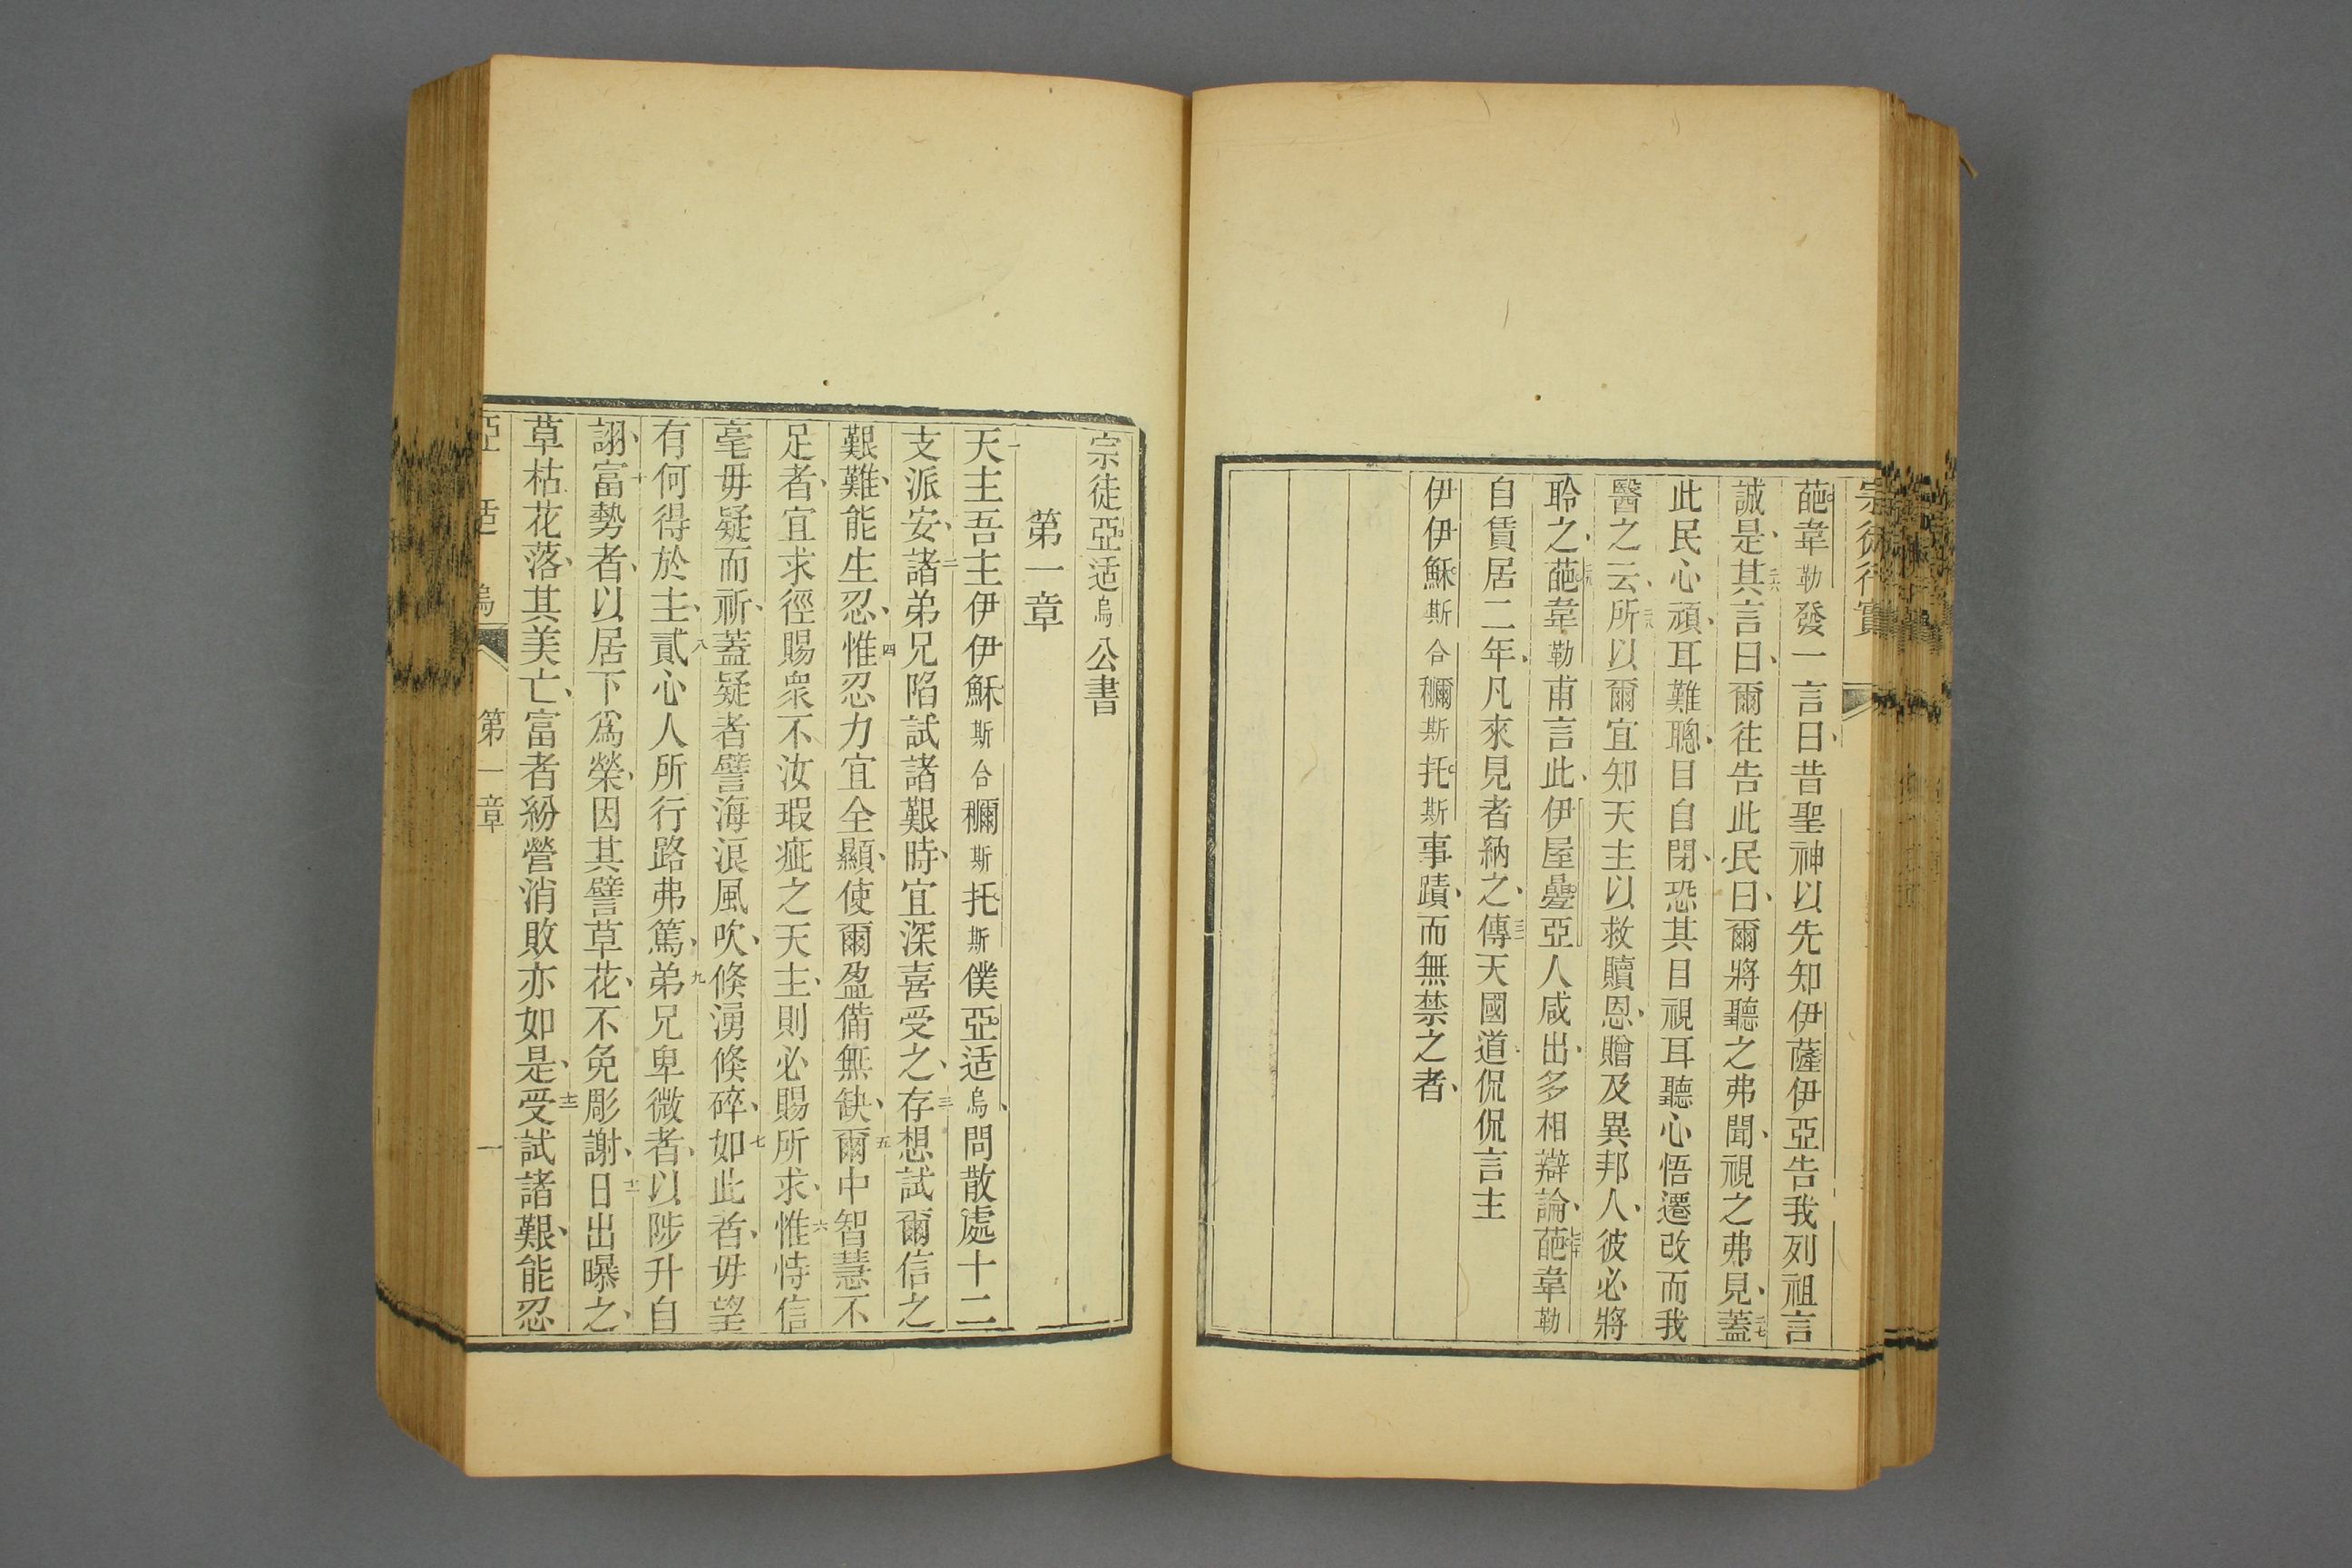 宗徒行實
葩韋勒發一言曰、昔聖神以先知伊薩伊亞告我列祖言
誠是、二六其言曰、爾往告此民曰、爾將聽之弗聞、視之弗見、二七蓋
此民心頑、耳難聰、目自閉、恐其目視耳聽心悟遷改而我
醫之云、二八所以爾宜知天主以救贖恩、贈及異邦人、彼必將
聆之、二九葩韋勒甫言此、伊屋疊亞人咸出、多相辯論、三十葩韋勒
自賃居二年、凡來見者納之、三一傳天國道、侃侃言主
伊伊穌斯合穪斯托斯事蹟、而無禁之者、
宗徒亞适烏公書
第一章
一天主吾主伊伊穌斯合穪斯托斯僕亞适烏、問散處十二
支派安、二諸弟兄陷試諸艱時、宜深喜受之、三存想試爾信之
艱難、能生忍、四惟忍力宜全顯、使爾盈備無缺、五爾中智慧不
足者、宜求徑賜衆不汝瑕疵之天主、則必賜所求、六惟恃信
毫毋疑而祈、蓋疑者譬海浪風吹、倏湧倏碎、七如此者、毋望
有何得於主、八貳心人所行路弗篤、九弟兄卑微者、以陟升自
詡、十富勢者、以居下爲榮、因其譬草花、不免彫謝、十一日出曝之、
草枯花落、其美亡、富者紛營消敗亦如是、十二受試諸艱、能忍
亞适烏 第一章 一